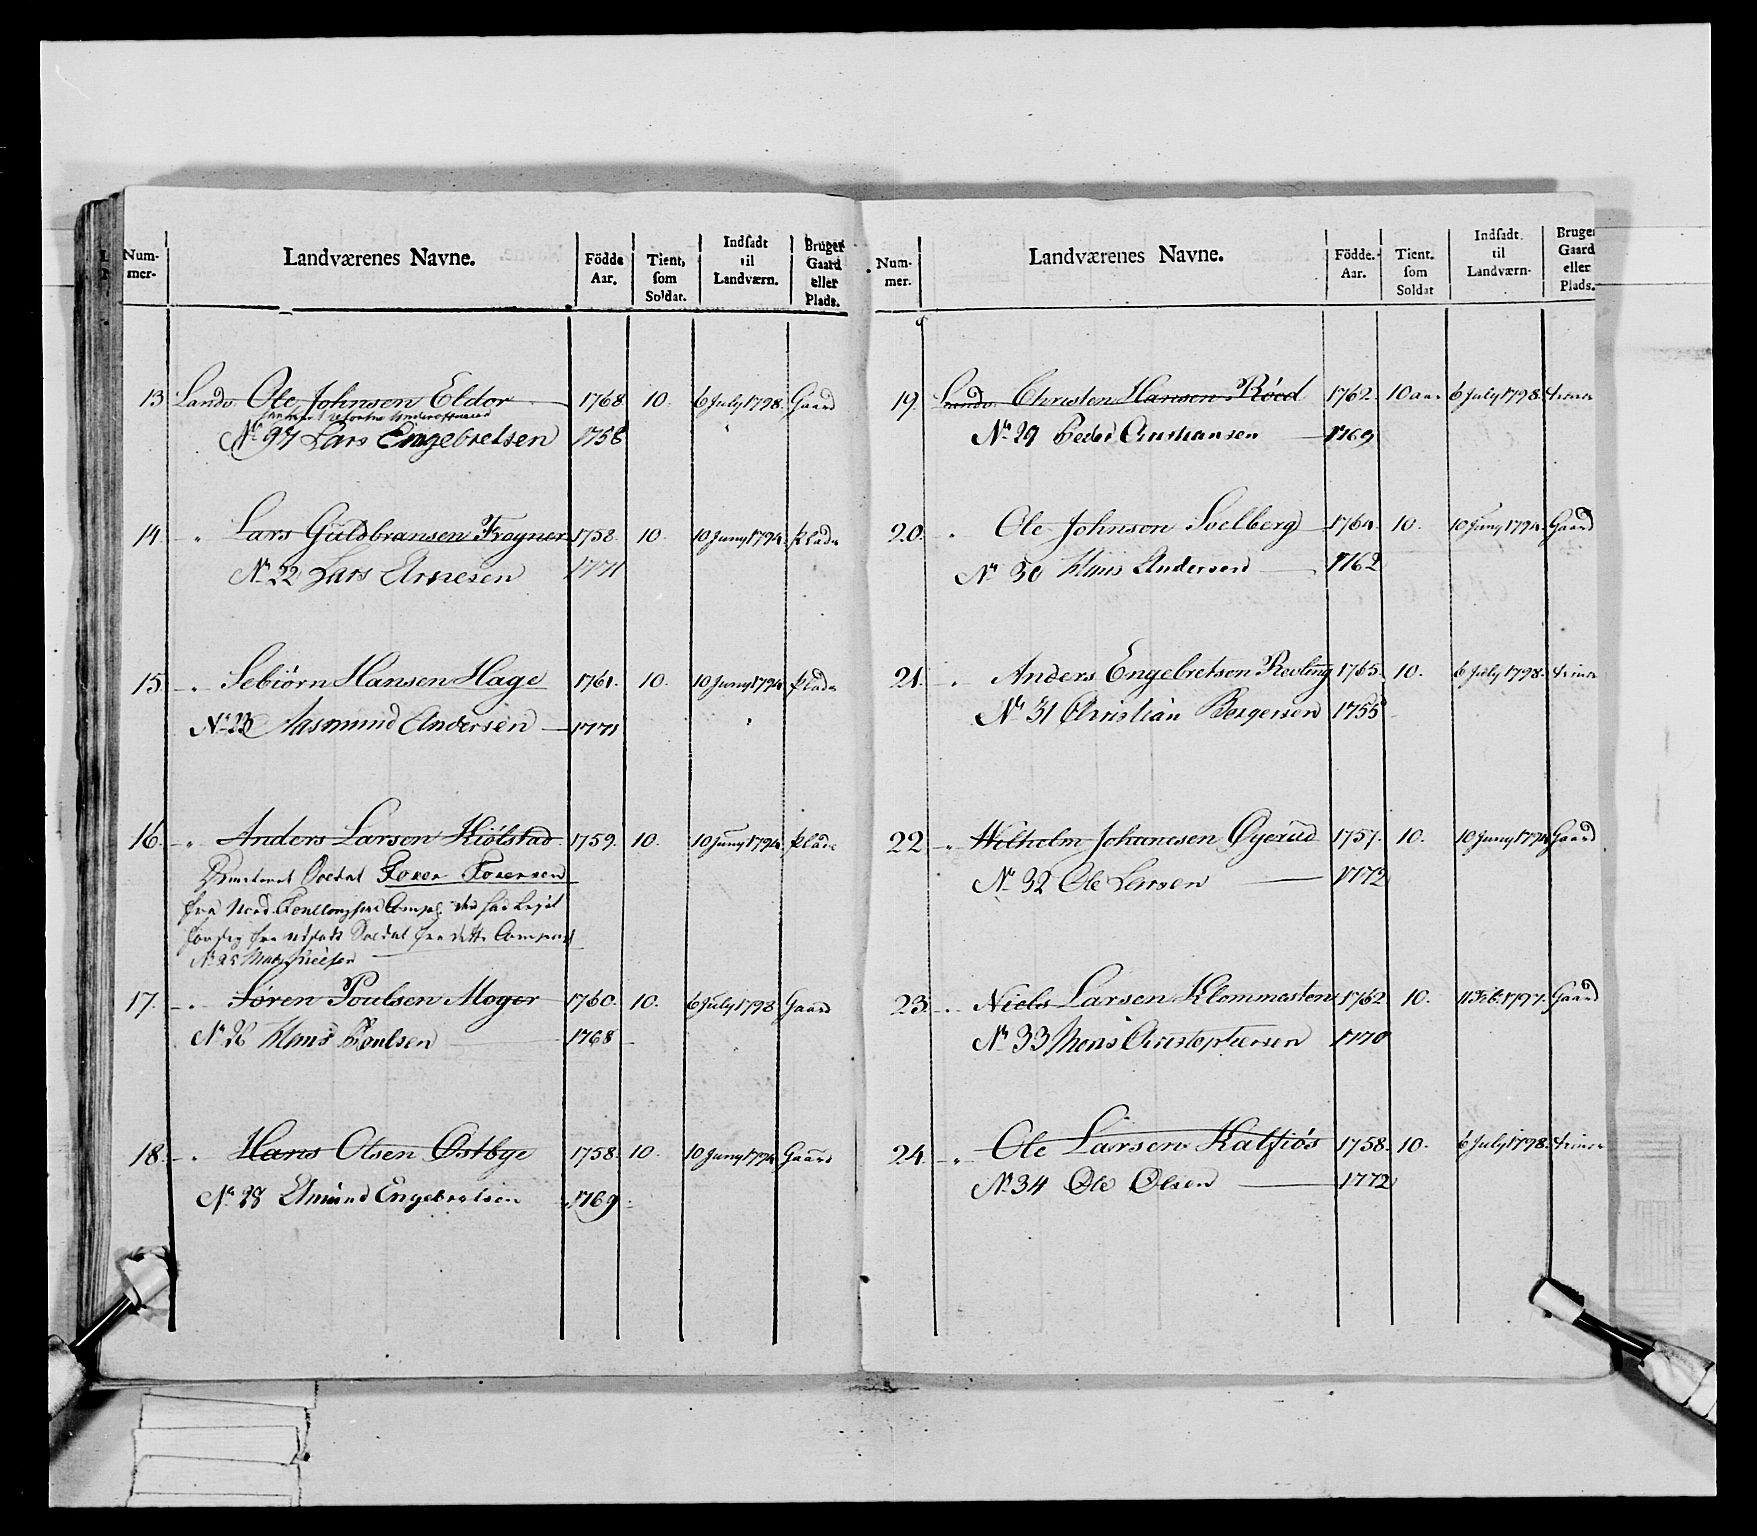 Num-
mer.
Landværenes Navne.
Födde
Aar.
Tient,
som
Soldat.
Indsadt
til
Landværn.
Bruger
Gaard
eller
Plads.
13 Landv. Ole Johnsen Eldor 1768 10. 6 July 1798. Gaard
No 97 Lars Engebretsen 1758
14 " Lars Guldbransen Frogner 1758. 10. 10 Juny 1794. Plads
No 22 Lars Arnesen 1771
15. " Sebiørn Hansen Hage 1761. 10. 10 Juny 1794 Plads
No 23 Aasmund Andersen 1771
16. " Anders Larsen Kiølstad 1759. 10. 10 Juny 1794. Plads
Soldat
fra Nord
fra udsadt Soldat fra dette Compagnie
No 25
17. " Søren Poulsen Moger 1760. 10. 6 July 1798 Gaard
No 26 Hans Poulsen 1768
18. " Hans Olsen Østbye 1758. 10. 10 Juny 1794 Gaard
No 28 Amund Engebretsen 1769
Num-
mer.
Landværenes Navne.
Födde.
Aar.
Tient.
som
Soldat
Indsadt
til
Landværn.
Bruger
Gaard
eller
Plads.
19. Landv. Christen Hansen Rööd 1762. 10 aar 6 July 1798.
No 29 Peder Christiansen 1769
20. " Ole Johnsen Soelberg 1764. 10. 10 Juny 1794. Gaard
No 30 Hans Andersen 1762
21. " Anders Engebretsen Revling 1765. 10. 6 July 1798.
No 31 Christian Borgersen 1755
22 " Wilhelm Johannesen Øyerud 1757. 10. 10 Juny 1794 Gaard
No 32 Ole Larsen 1772
23. " Niels Larsen Klommesten 1762. 10. 11 Feb. 1797. Gaard
No 33 Mons Christophersen 1770
24. " Ole Larsen Kalfiøs 1758. 10. 6 July 1798.
No 34 Ole Olsen 1772